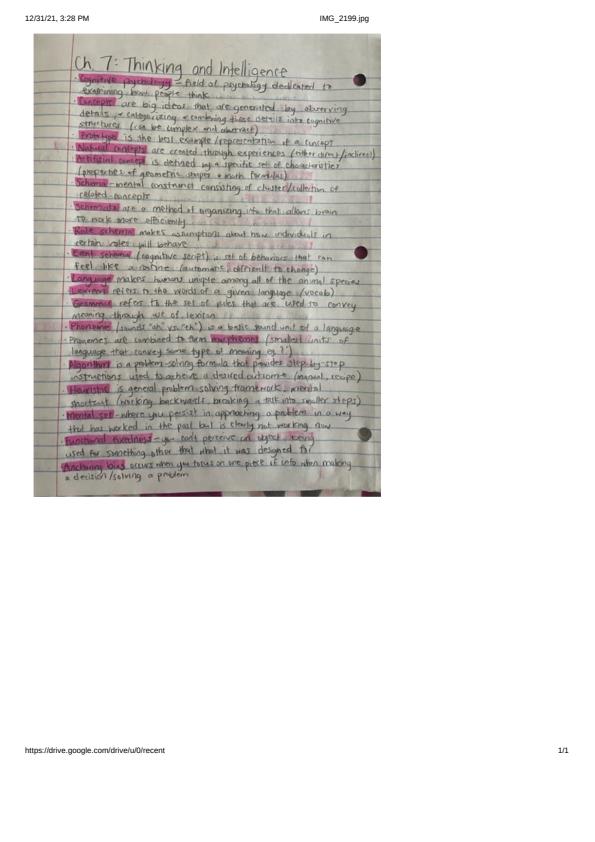 12/31/21, 3:28 PM IMG_2199.jpg
Ch. 7: Thinking and Intelligence
· Cognitive psychology - field of psychology dedicated to
examining how people think
· Concepts are big ideas that are generated by observing
details, & categorizing & combining those details into cognitive
structures (can be complex and abstract)
· Prototype is the best example/representation of a concept
· Natural concepts are created through experiences (either direct/indirect)
· Artificial concept is defined by a specific set of characteristics
(properties of geometric shapes & math formulas)
· Schema - mental construct consisting of cluster/collection of
related concepts
· Schemata are a method of organizing info that allows brain
to work more efficiently
· Role schema makes assumptions about how individuals in
certain roles will behave
· Event schema (cognitive script) is set of behaviors that can
feel like a routine (automatic, difficult to change)
· Language makes humans unique among all of the animal species
· Lexicon refers to the words of a given language (vocab)
· Grammar refers to the set of rules that are used to convey
meaning through use of lexicon
· Phoneme (sounds "ah" vs. "eh") is a basic sound unit of a language
· Phonemes are combined to form morphemes (smallest units of
language that convey some type of meaning,
· Algorithm is a problem-solving formula that provides step-by-step
instructions used to achieve a desired outcome (manual, recipe)
· Heuristic is general problem solving framework, mental
shortcut (working backwards, breaking a task into smaller steps)
· Mental set - where you persist in approaching a problem in a way
that has worked in the past but is clearly not working now
· Functional fixedness - you can't perceive an object being
used for something other that what it was designed for
· Anchoring bias occurs when you focus on one piece of info when making
a decision/solving a problem
https://drive.google.com/drive/u/0/recent 1/1